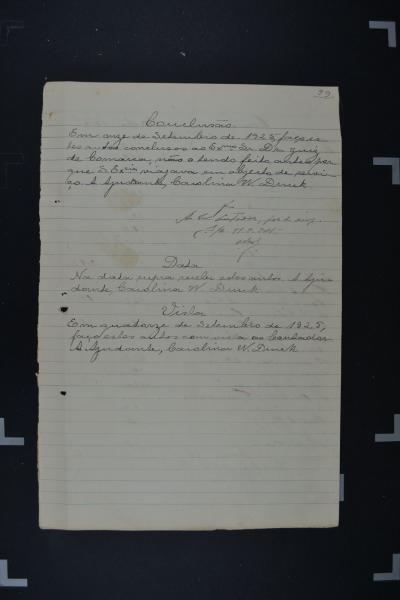 22.
Conclusão
Em onze de Setembro de 1925, faço es-
tes autos conclusos ao Exmo Sr. Dr. Juiz
de Comarca, não o tendo feito antes por
que S. Excia viajava em objecto de servi-
ço. A Ajudante, Carolina W. Denck
Data
Na data supra recebi estes autos. A Aju-
dante, Carolina W. Denck
Vista
Em quatorze de Setembro de 1925,
faço estes autos com vista ao Contador
A Ajudante, Carolina W. Denck